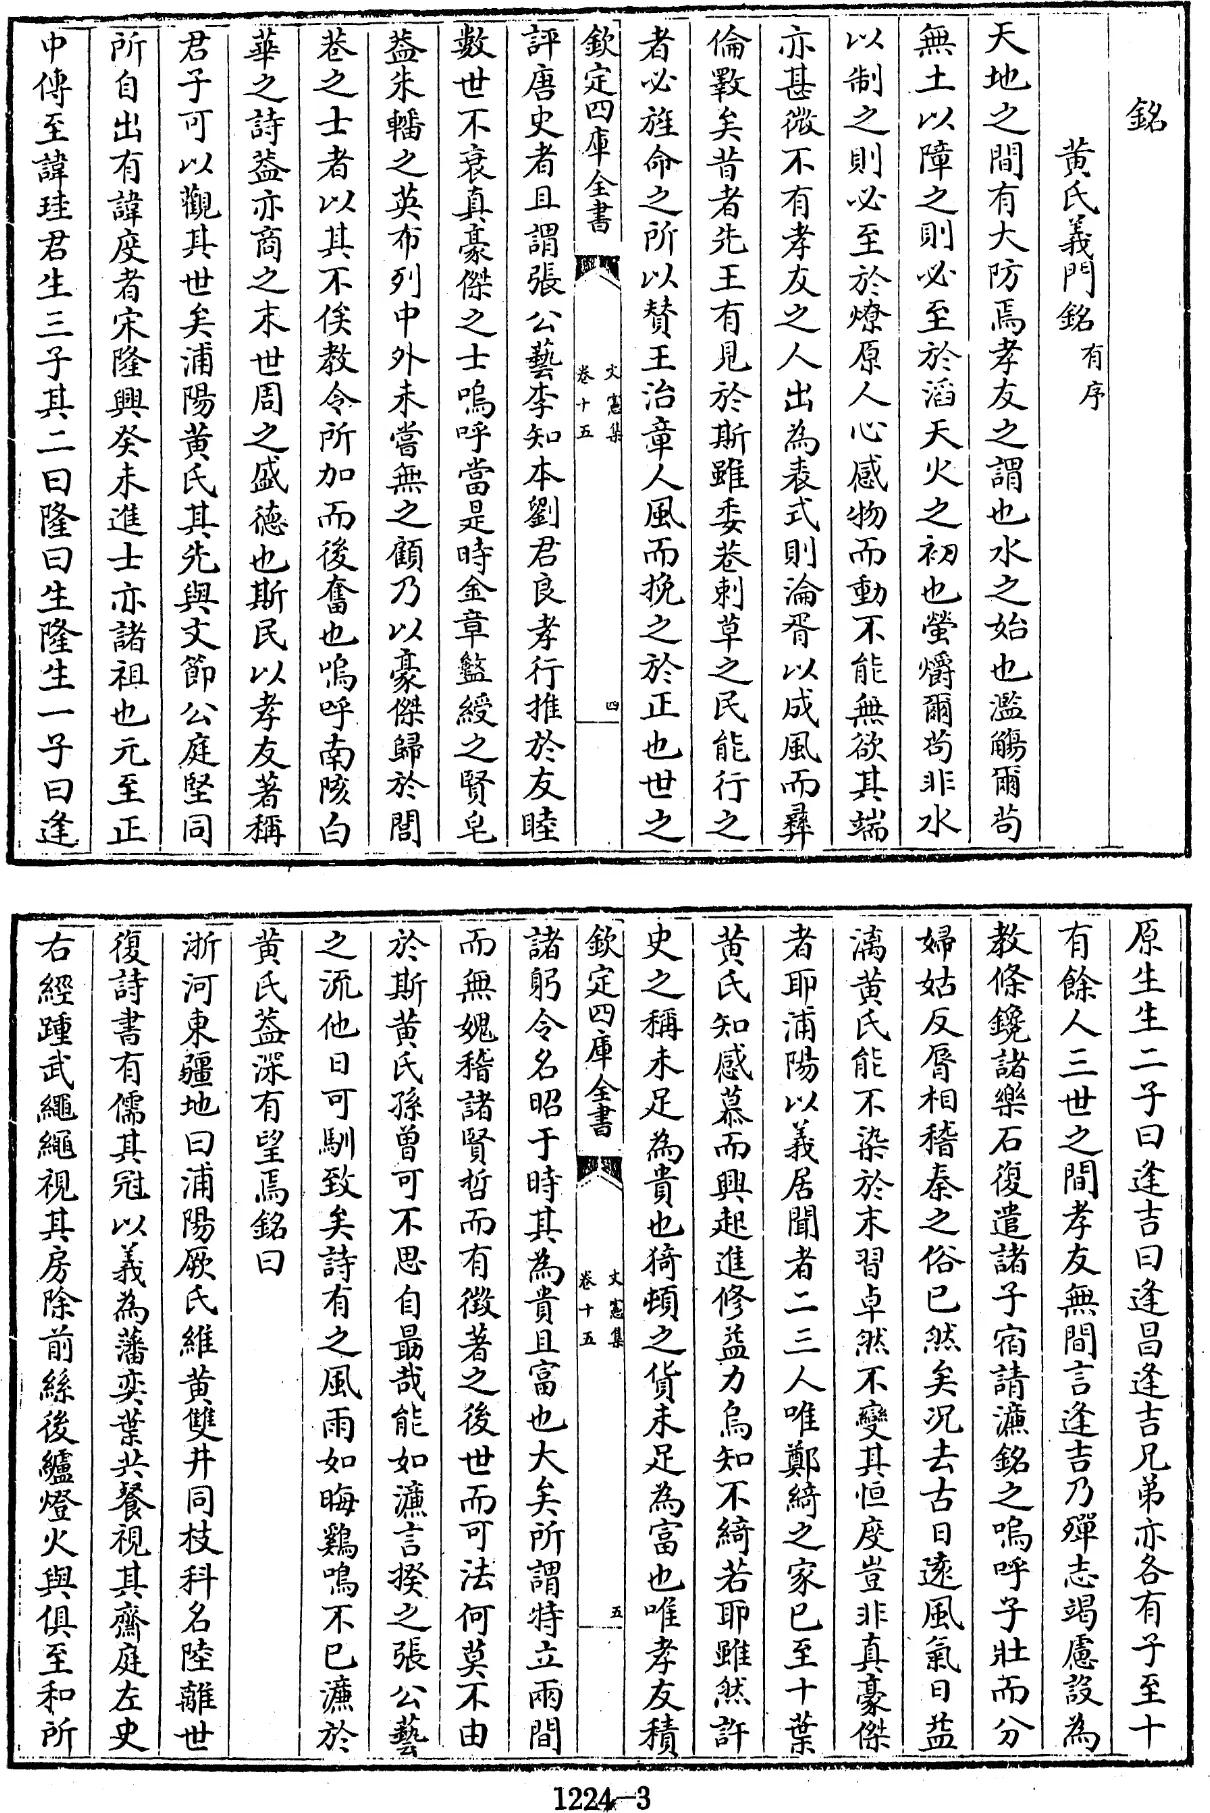 銘
黄氏義門銘有序
天地之間有大防焉孝友之謂也水之始也濫觴爾茍
無土以障之則必至於滔天火之初也螢爝爾茍非水
以制之則必至於燎原人心感物而動不能無欲其端
亦甚微不有孝友之人出為表式則淪胥以成風而彞
倫斁矣昔者先王有見於斯雖委巷刺草之民能行之
者必旌命之所以賛王治章人風而挽之於正也世之
欽定四庫全書
文憲集
卷十五
四
評唐史者且謂張公藝李知本劉君良孝行推於友睦
數世不衰真豪傑之士嗚呼當是時金章盭綬之賢皂
葢朱轓之英布列中外未嘗無之顧乃以豪傑歸於閭
巷之士者以其不俟教令所加而後奮也嗚呼南陔白
華之詩葢亦商之末世周之盛德也斯民以孝友著稱
君子可以觀其世矣浦陽黄氏其先與文節公庭堅同
所自出有諱度者宋隆興癸未進士亦諸祖也元至正
中傳至諱珪君生三子其二曰隆曰生隆生一子曰逢
原生生二子曰逢吉曰逢昌逢吉兄弟亦各有子至十
有餘人三世之間孝友無間言逢吉乃殫志竭慮設為
教條鑱諸樂石復遣諸子宿請濂銘之嗚呼子壯而分
婦姑反脣相稽秦之俗已然矣况去古日逺風氣日益
漓黄氏能不染於末習卓然不變其恒度豈非真豪傑
者耶浦陽以義居聞者二三人唯鄭綺之家已至十葉
黄氏知感慕而興起進修益力烏知不綺若耶雖然許
史之稱未足為貴也猗頓之貨未足為富也唯孝友積
欽定四庫全書
文憲集
卷十五
五
諸躬令名昭于時其為貴且富也大矣所謂特立兩間
而無媿稽諸賢哲而有徴著之後世而可法何莫不由
於斯黄氏孫曾可不思自朂哉能如濂言揆之張公藝
之流他日可馴致矣詩有之風雨如晦鷄鳴不已濂於
黄氏葢深有望焉銘曰
浙河東疆地曰浦陽厥氏維黄雙井同枝科名陸離世
復詩書有儒其冠以義為藩奕葉共餐視其齋庭左史
右經踵武繩繩視其房除前絲後纑燈火與俱至和所
1224—3